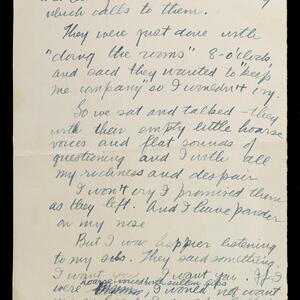 which calls to them.
They were just done with
"doing the rooms" 8-o'clock,
and said they wanted to "keep
me company" so I wouldn't cry.
So we sat and talked – they
with their empty little hoarse
voices and flat sounds of
questioning and I with all
my richness and despair
I won't cry I promised them
as they left. And I leave powder
on my nose
But I was happier listening
to my sobs. They said something.
I want you, I want you. If I
hoarse-voiced sullen girls
were, I would not want